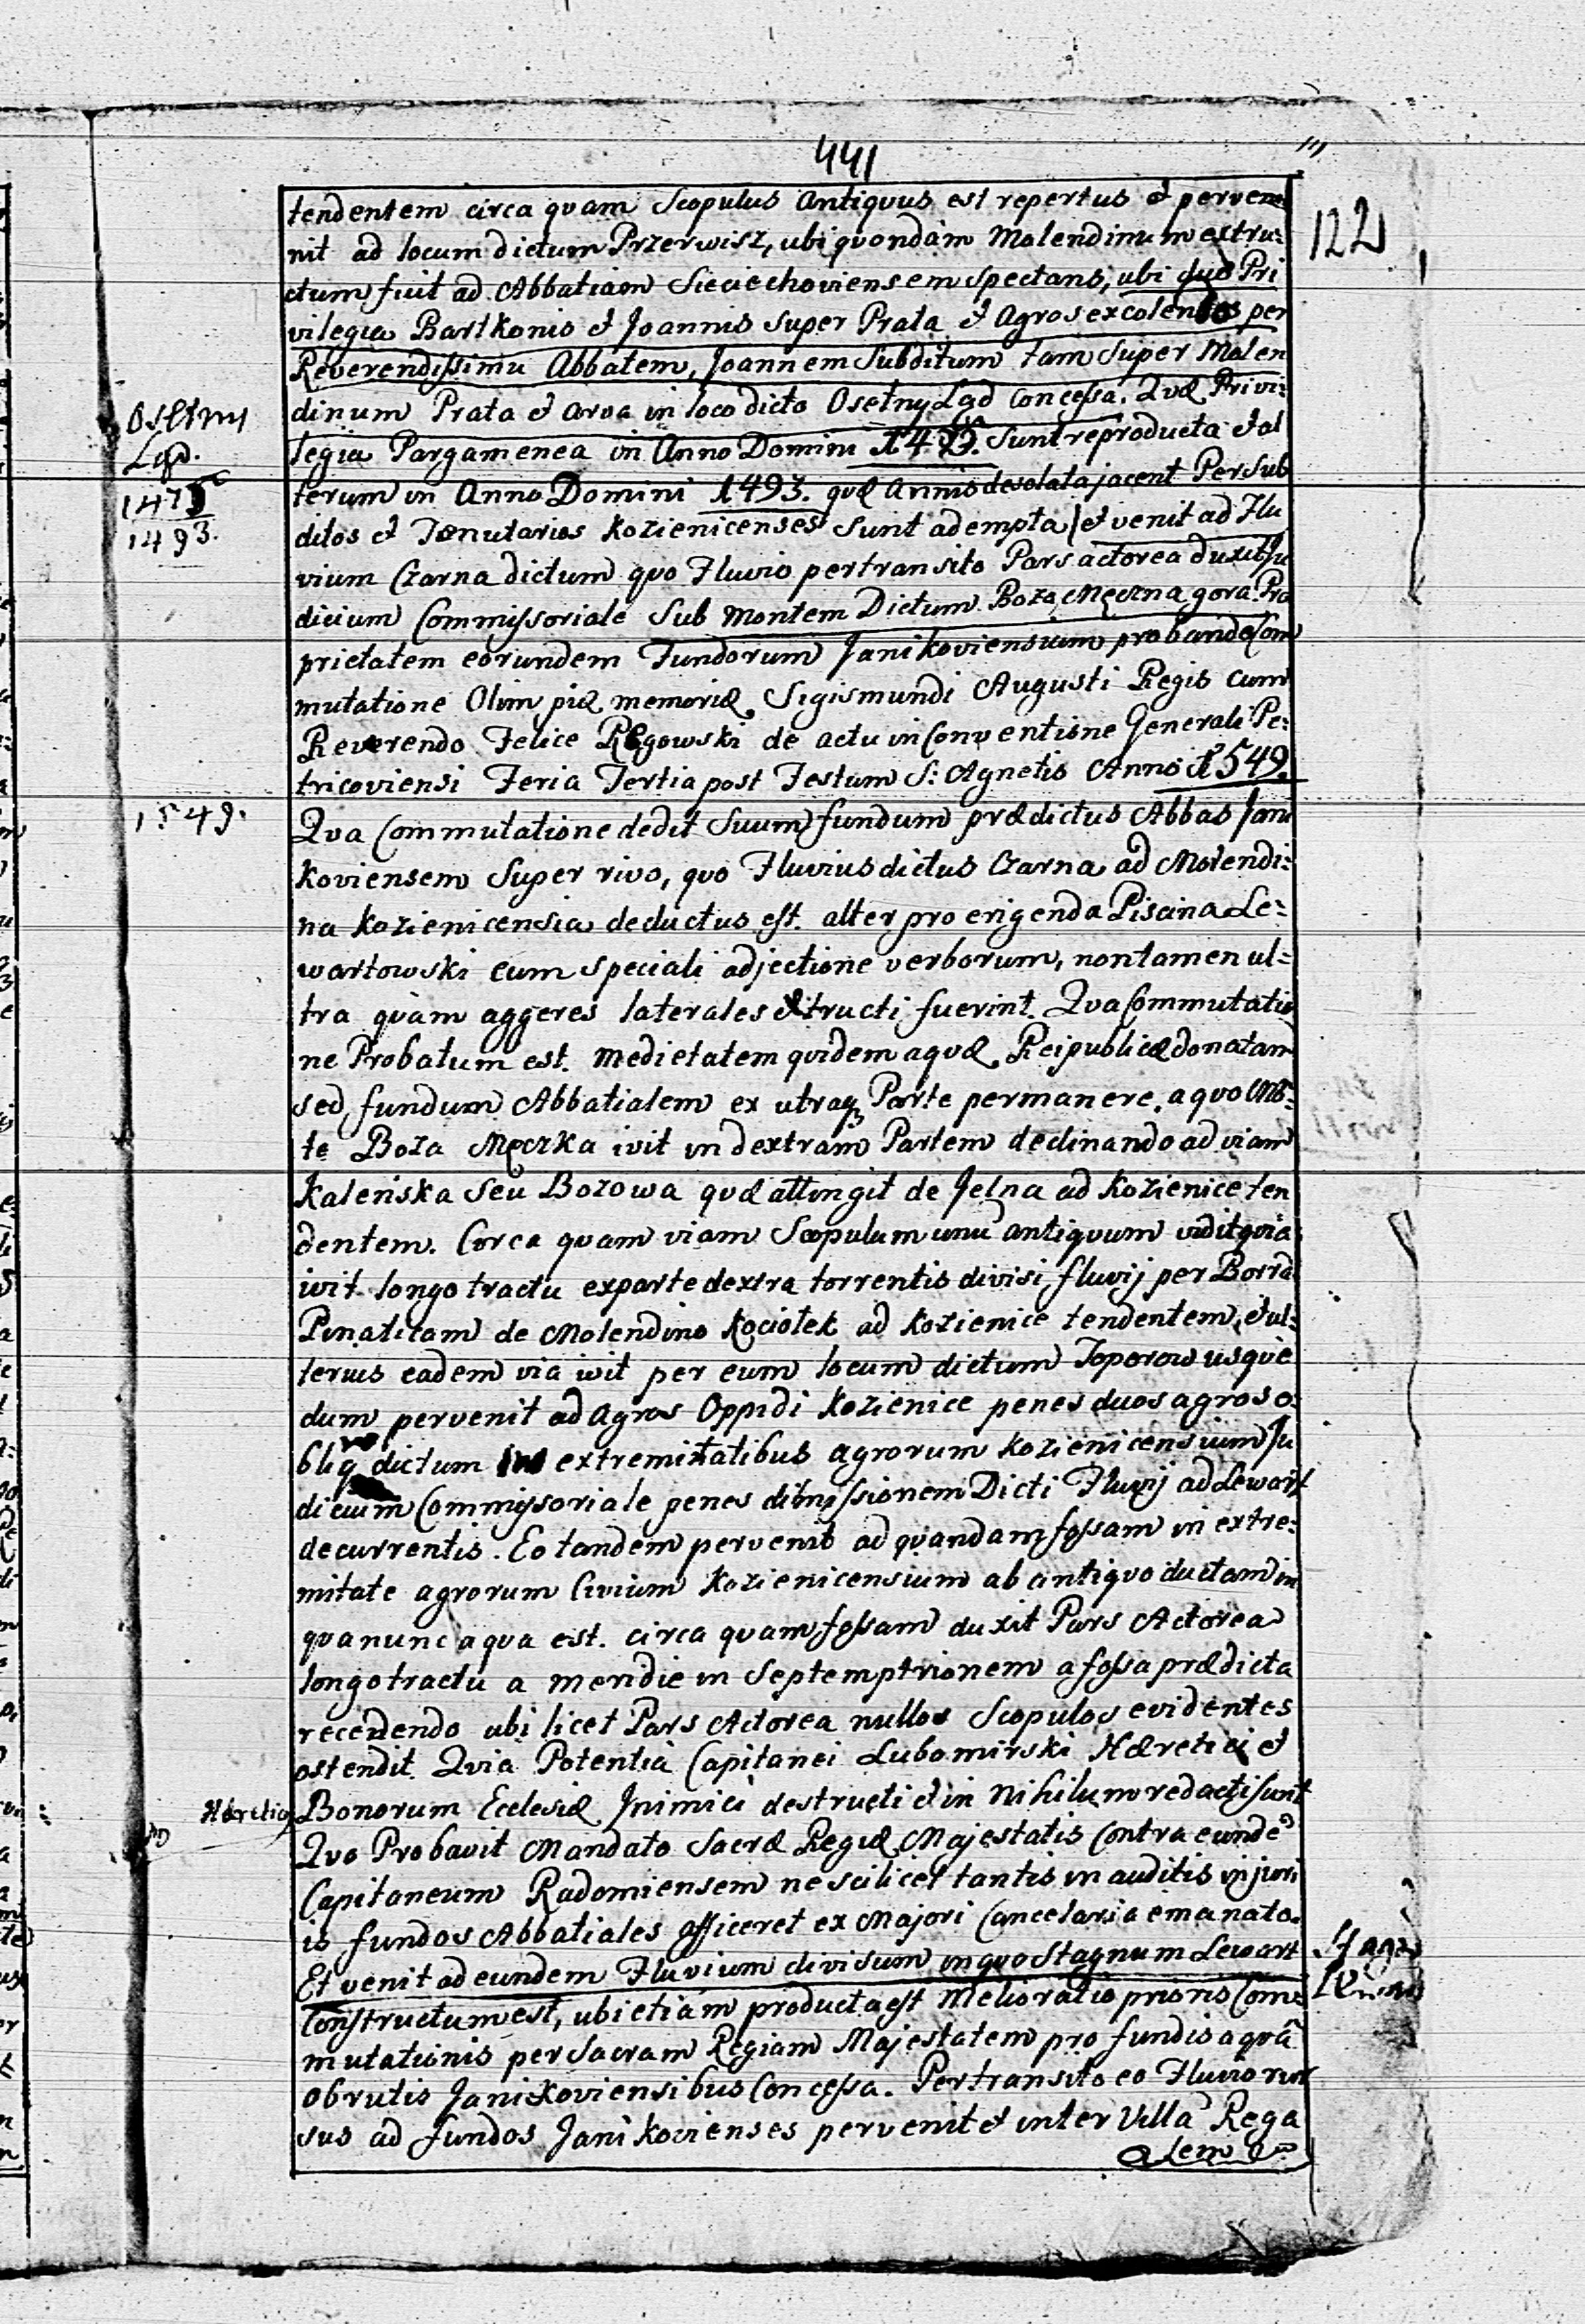 441
122
tendentem circa quam Scopulus antiquus est repertus et perve
nit ad locum dictum Przerwisz, ubi quondam Molendinum extru:
ctum fuit ad Abbatiam Sieciechoviensem Spectans, ubi duo Pri
vilegia Bartkonis et Joannis Super Prata et Agros excolentos per
Reverendissimu Abbatem, Joannem Subditum tam Super Molen
dinum Prata et arva in loco dicto Osetny Lgd Concessa. Quæ Privi:
legia Pargamenea in Anno Domini 1475. Sunt reproducta et al
terum in Anno Domini 1493. quæ annis desolata jacent Per Sub
ditos et Tenutarios Kozienicenses Sunt adempta et venit ad Flu
vium Czarna dictum quo Fluvio pertransito Pars actorea duxit Ju
dicium Commissoriale Sub Montem Dictum Boza Męczna gora. Pro
prietatem eorundem Fundorum Janikoviensium probando Com
mutatione Olim piæ memoriæ Sigismundi Augusti Regis cum
Reverendo Felice Rogowski de actu in Conventione Generali Pe:
tricoviensi Feria Tertia post Festum S: Agnetis Anno 1549.
Qva Commutatione dedit Suum fundum prædictus Abbas Jani
koviensem Super rivo, quo Fluvius dictus Czarna ad Molendi:
na Kozienicensia deductus est. alter pro erigenda Piscina Le:
wartowski cum speciali adjectione verborum, non tamen ul=
tra quam aggeres laterales extructi fuerint. Qva Commutatio
ne Probatum est. medietatem quidem aquæ Reipublicæ donatam
sed fundum Abbatialem ex utraq Parte permanere. a quo Mo:
te Boza Męczka ivit in dextram Partem declinando ad viam
Kaleńska Seu Bozowa quæ attingit de Jelna ad Kozienice ten
dentem. Circa quam viam Scopulum unu antiquum vidit quia
ivit longo tractu ex parte dextra torrentis divisi fluvij per Borra
Pinaticam de Molendino Kociołek ad Kozienice tendentem, et ul:
terius eadem via ivit per eum locum dictum Toporow usque
dum pervenit ad Agros Oppidi Kozienice penes duos agros o:
bliq dictum in extremitatibus agrorum Kozienicensium Ju
dicium Commissoriale penes dimissionem Dicti Fluvij ad Lewart
decurrentis. Eo tandem pervenit ad quandam fossam in extre:
mitate agrorum Civium Kozienicensium ab antiquo ductam in
qua nunc aqua est. circa quam fossam duxit Pars Actorea
longo tractu a meridie in Septemptrionem a fossa prædicta
recedendo ubi licet Pars Actorea nullos Scopulos evidentes
ostendit. Qvia Potentia Capitanei Lubomirski Hæretici et
Bonorum Ecclesiæ Jnimici destructi et in Nihilum redacti sunt
Qvo Probavit Mandato Sacræ Regiæ Majestatis Contra eunde
Capitaneum Radomiensem ne scilicet tantis in auditis injuri
is fundos Abbatiales afficeret ex Majori Cancelaria emanato.
Et venit ad eundem Fluvium divisum in quo Stagnum Lewart
Constructum est, ubi etiam producta est Melioratio prioris Com:
mutationis per Sacram Regiam Majestatem pro fundis aqua
obrutis Janikoviensibus Concessa. Pertransito eo Fluvio rur
sus ad fundos Janikovienses pervenit et inter Villa Rega
lem
Osetny
Lgd.
1475
1493.
1549.